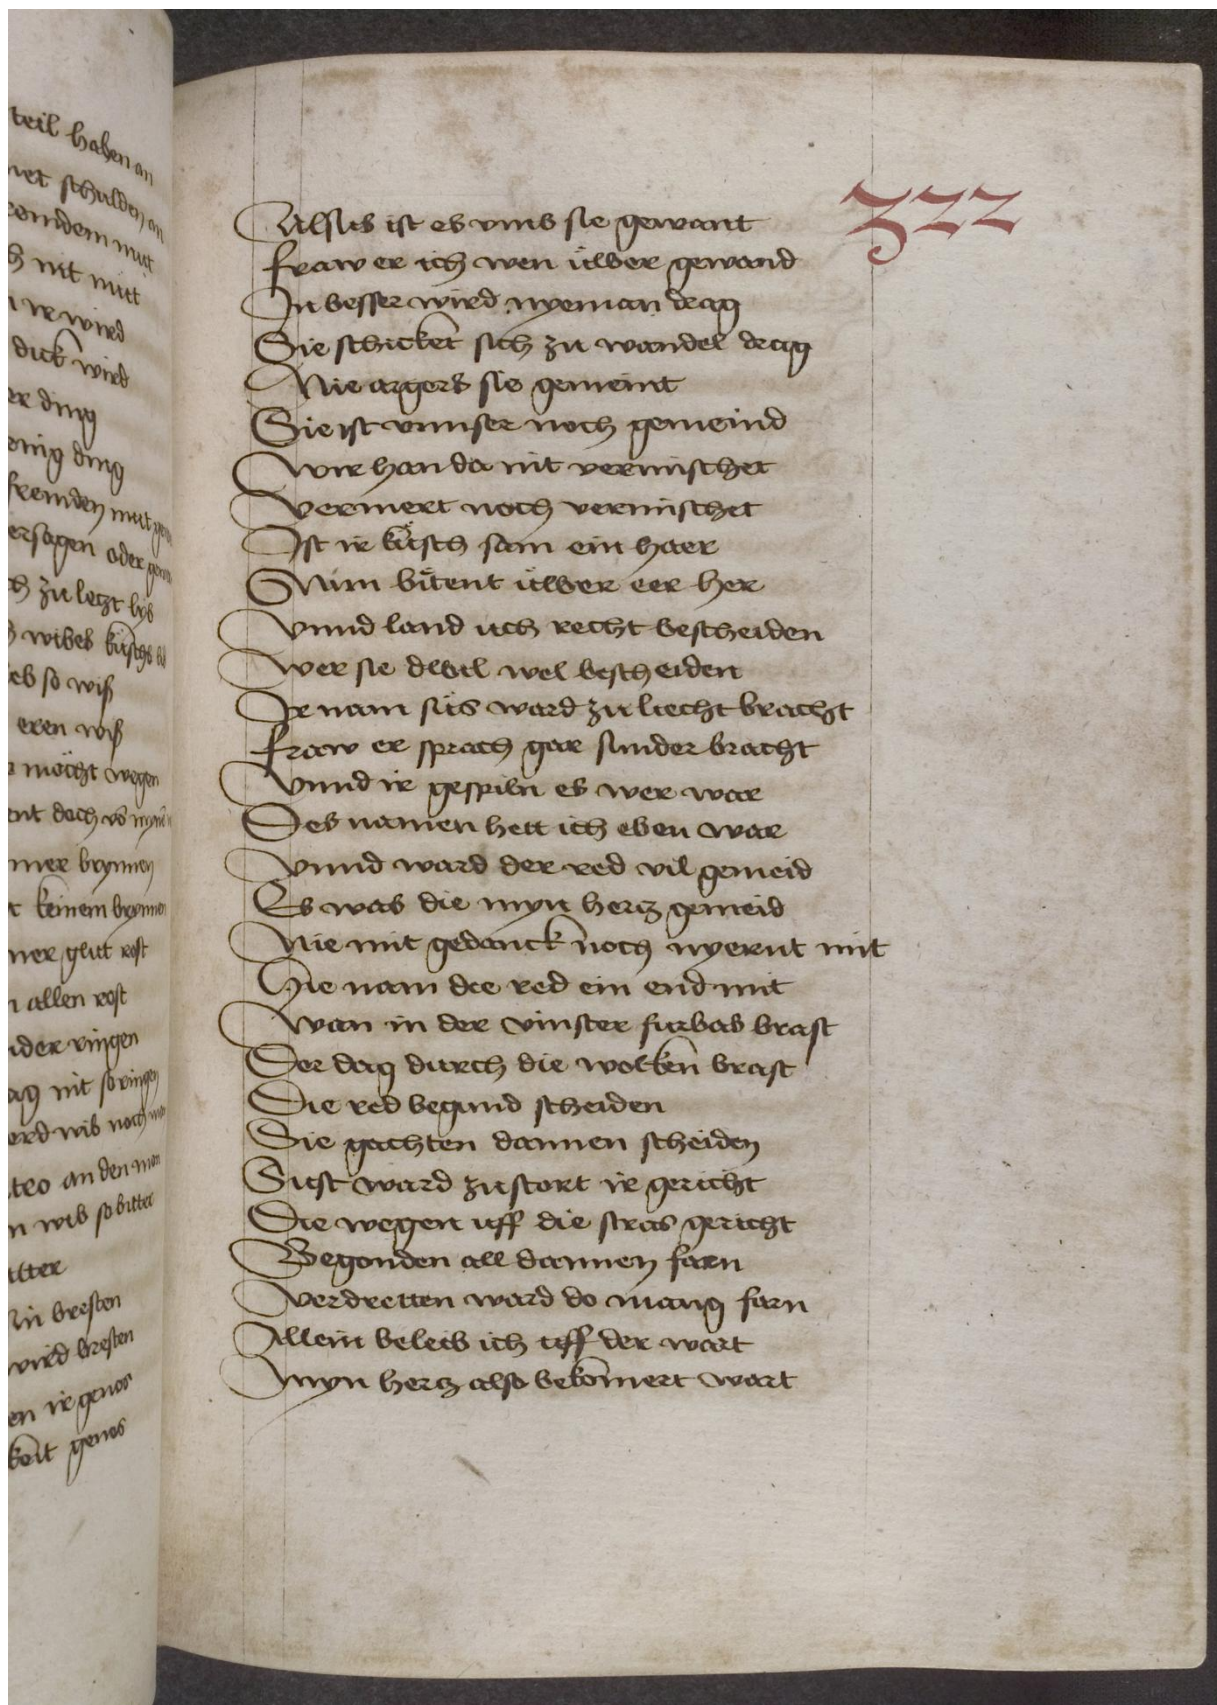 teil haben an
schulden an
mut
nit mitt
ir wird
dick wird
ding
ding
fremden mut
ersagen oder
zu letzt lyb
wibes küschs
so wiß
eren wiß
möcht wegen
doch
brynnen
keinem brynnen
glut rost
allen rost
ringen
nit so ringen
wib noch
an den man
wib so bitter
bresten
wird bresten
ir genos
genos
322
Alsus ist es vmb sie gewant
fraw er ich wen üwer gewand
In besser wird nyeman drag
Sie schicket sich zu wandel drag
Nie argers sie gemeint
Sie ist vnnser noch gemeind
Wir han da nit vermischet
Vermert noch vermischet
Ist ir küsch sam ein haer
Nim bütent üwer eer her
Vnnd land uch recht bescheiden
Wer sie dwil wel bescheiden
Ir nam süs ward zu liecht bracht
fraw er sprach gar sunder bracht
Vnnd ir gespiln es wer war
Des namen hett ich eben war
Vnnd ward der red vil gemeid
Es was die myn hertz gemeid
Nie mit gedanck noch nyernt mit
Hie nam die red ein end mit
Wan in der vinster furbas brast
Der dag durch die wolken brast
Die red begund scheiden
Sie gachten dannen scheiden
Sust ward zustort ir gericht
Die wegen uff die stras gericht
Begonden all dannen farn
Verdretten ward do mang farn
Allein beleib ich uff der wart
Myn hertz also bekomert wart